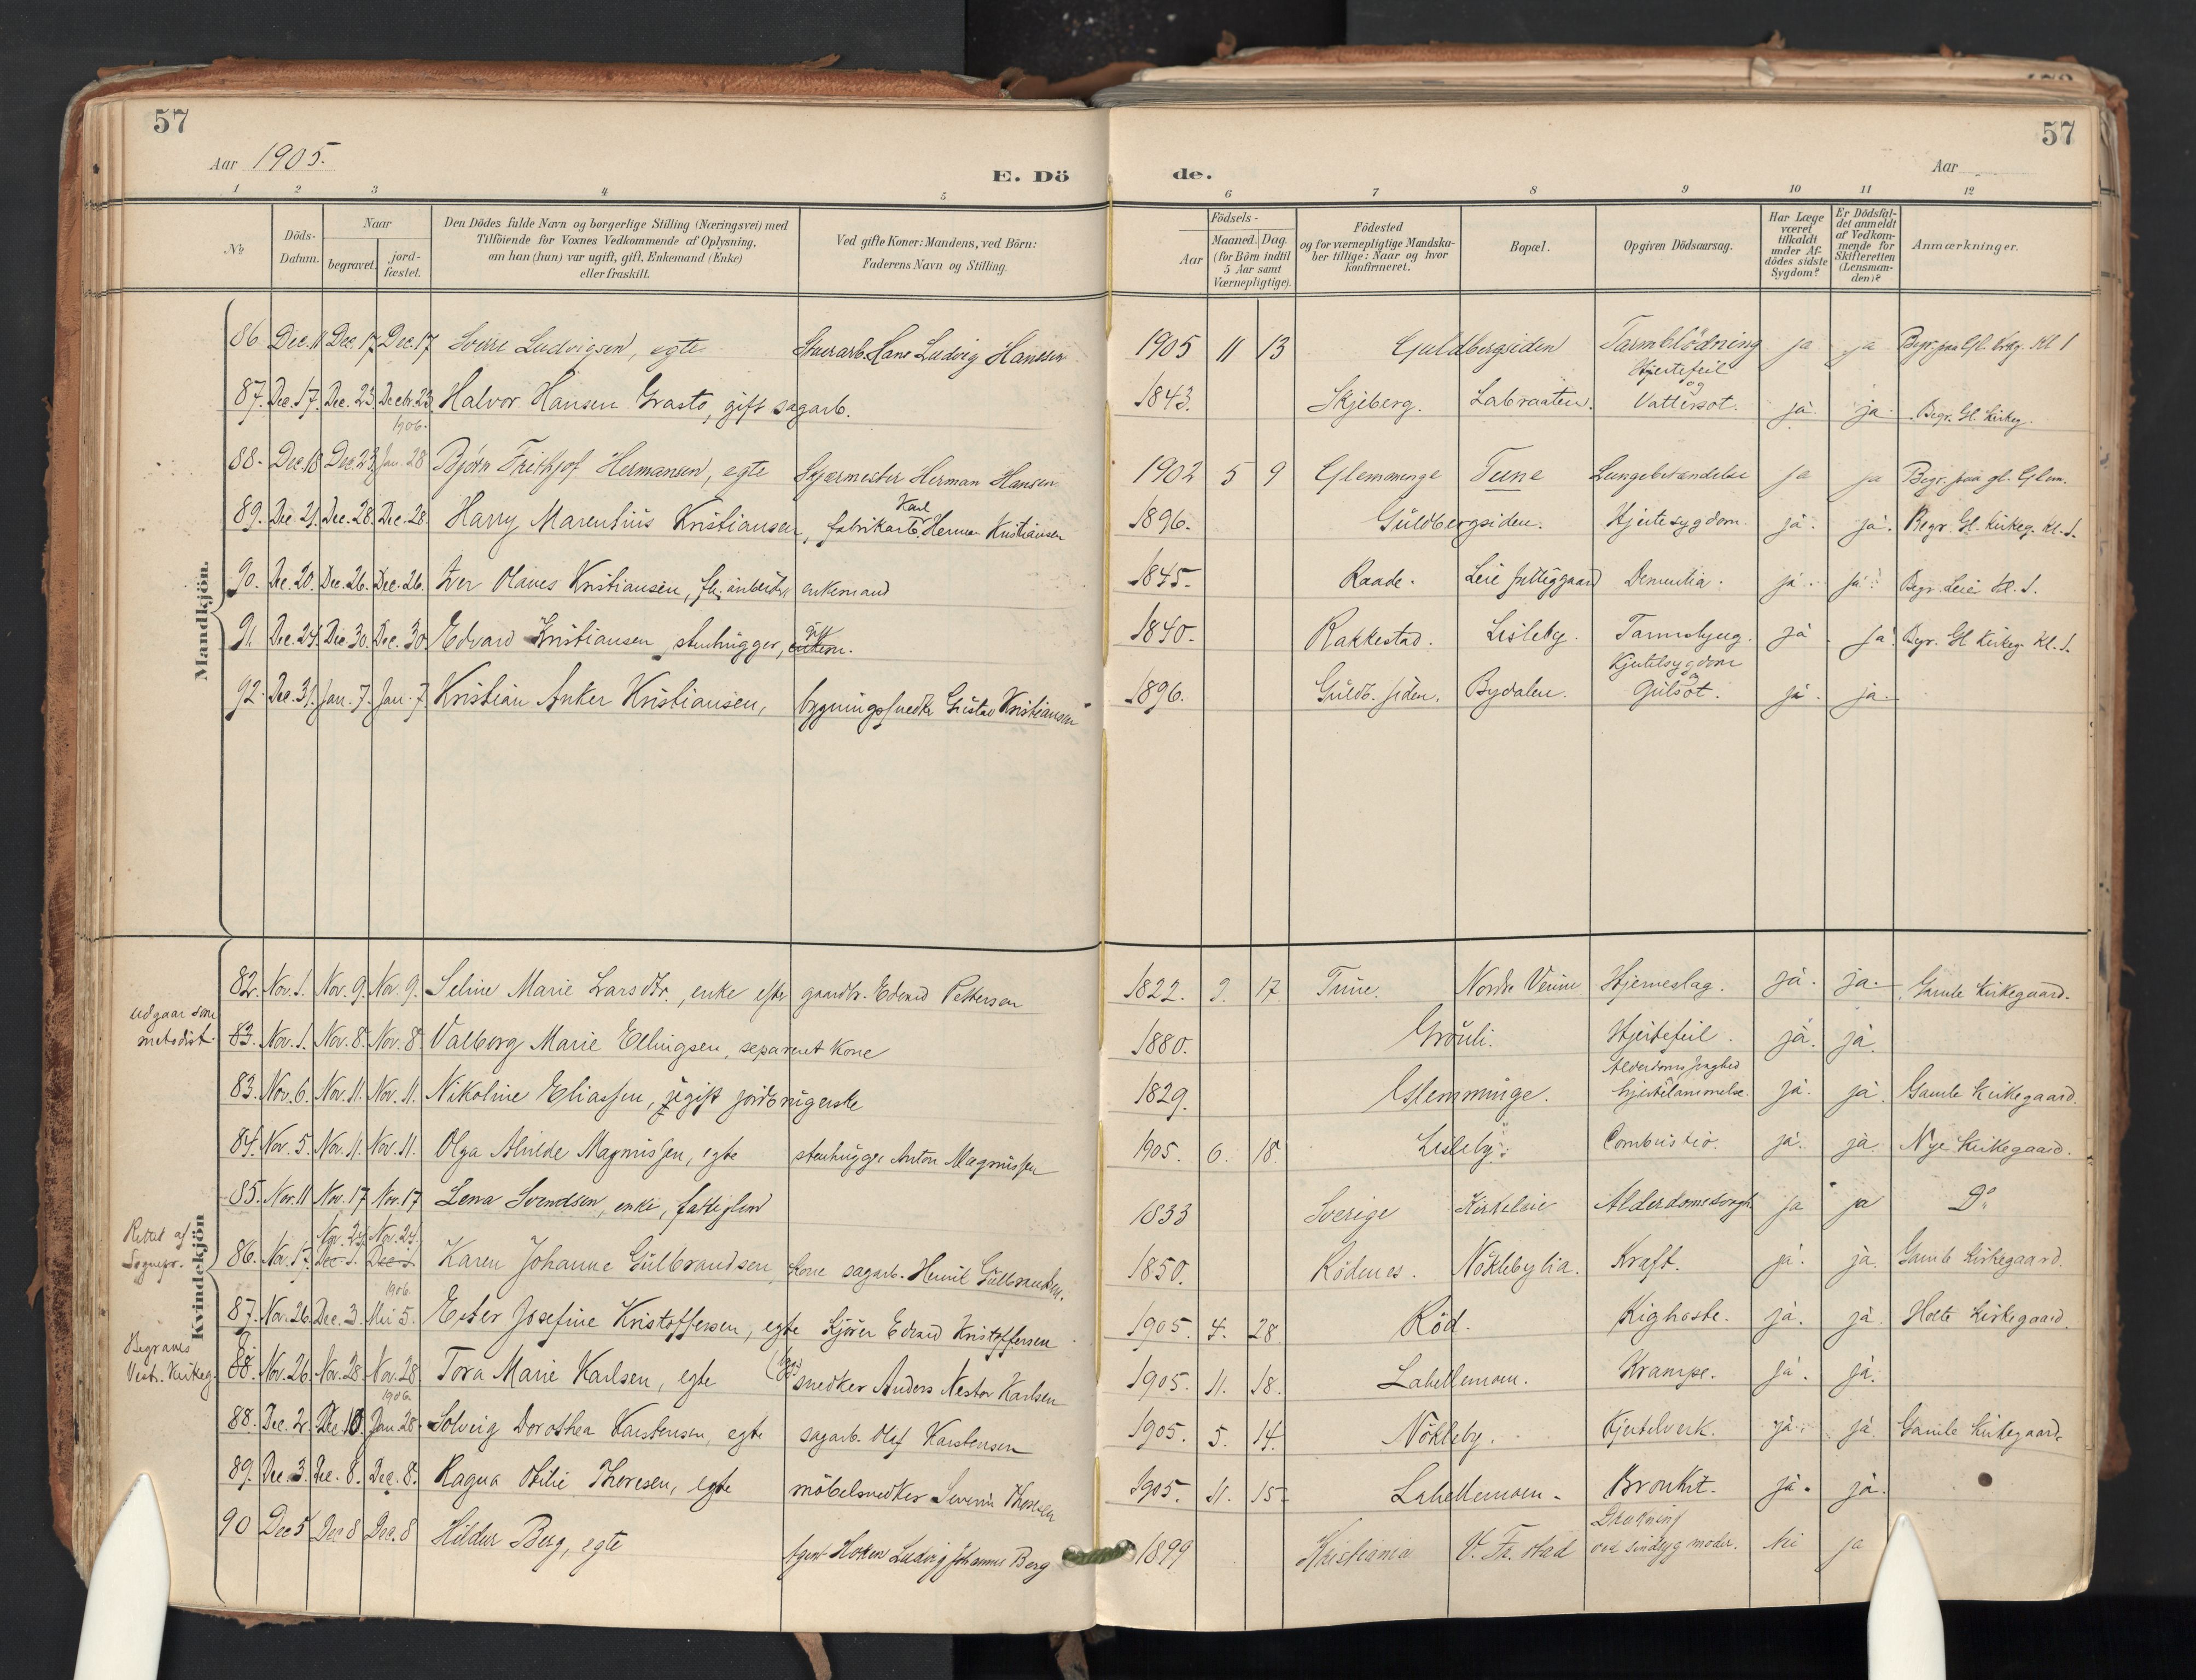 57
57
Aar 1905.
E. Dö
de.
Aar
1 2 3 4 5 6 7 8 9 10 11 12
№
Döds-Datum.
Naar
begravet.
jord-fæstet.
Den Dödes fulde Navn og borgerlige Stilling (Næringsvei) med
Tilföiende for Voxnes Vedkommende af Oplysning,
om han (hun) var ugift, gift, Enkemand (Enke)
eller fraskilt.
Ved gifte Koner: Mandens, ved Börn:
Faderens Navn og Stilling.
Födsels-
Aar
Maaned. Dag.
(for Börn indtil
5 Aar samt
Værnepligtige).
Födested
og for værnepligtige Mandska-
ber tillige: Naar og hvor
konfirmeret.
Bopæl.
Opgiven Dödsaarsag.
Har Læge
været
tilkaldt
under Af-
dödes sidste
Sygdom?
Er Dödsfal-
det anmeldt
af Vedkom-
mende for
Skifteretten
(Lensman-
den)?
Anmærkninger.
Mandkjön.
86. Dec. 11 Dec. 17 Dec. 17 Sverre Ludvigsen, egte Stuerarb. Hans Ludvig Hanssen 1905 11 13 Guldbergsiden Tarmblödning ja ja Begr. paa Gl. Kirkg. Kl 1
87. Dec. 17. Dec. 23 Decbr. 23 Halvor Hansen Grasto, gift sagarb. 1843. Skjeberg. Labraaten. Hjertefeil og Vattersot. ja. ja. Begr. Gl. Kirkeg.
88. Dec. 18 Dec. 23 1906. Jan. 28 Bjørn Frithjof Hermansen, egte Skjærmester Herman Hansen 1902 5 9 Glemminge Tune Lungebetændelse ja ja Begr. paa gl. Glem.
89. Dec. 21. Dec. 28. Dec. 28. Harry Marentius Kristiansen, fabrikarb. Karl Herman Kristiansen 1896. Guldbergsiden. Hjertesygdom. ja. ja. Begr. Gl. Kirkeg. Kl. 1.
90. Dec. 20. Dec. 26. Dec. 26. Iver Olaves Kristiansen, fh. arbeider enkemand 1845. Raade. Leie fattiggaard Dementia. ja. ja. Begr. Leie Kl. 1.
91. Dec. 24. Dec. 30. Dec. 30. Edvard Kristiansen, stenhugger, gift enkem. 1840. Rakkestad. Lisleby. Tarmslyng. ja. ja. Begr. Gl Kirkeg. Kl. 1.
92. Dec. 31. Jan. 7. Jan. 7. Kristian Anker Kristiansen, bygningssnedker Gustav Kristiansen 1896. Guldb. siden. Bydalen. Kjertelsygdom og Gulsot. ja. ja.
Kvindekjön
82. Nov. 1. Nov. 9. Nov. 9. Seline Marie Larsdtr., enke efter gaardbr. Edvard Pettersen 1822. 2. 17. Tune. Nordre Veum Hjerneslag. ja. ja. Gamle Kirkegaard.
udgaar som
metodist.
83. Nov. 1. Nov. 8. Nov. 8. Valborg Marie Ellingsen, separeret kone 1880. Grönli. Hjertefeil. ja. ja.
83. Nov. 6. Nov. 11. Nov. 11. Nikoline Eliassen, ugift jordbrugerske 1829. Glemminge. Alderdomssvaghed Hjertelammelse. ja. ja. Gamle Kirkegaard.
84. Nov. 5. Nov. 11. Nov. 11. Olga Alvilde Magnussen, egte stenhugger Anton Magnussen 1905. 6. 18. Lisleby. Combustio. ja. ja. Nye Kirkegaard.
85. Nov. 11 Nov. 17 Nov. 17 Lena Svendsen, enke, fattiglem 1833 Sverige Kirkeleie Alderdomssvagh. ja ja Do
Rettet af
Sognepr.
86. Nov. 17. Nov. 24. Dec. 1. Nov. 24. Dec. 1. Karen Johanne Gulbrandsen, kone sagarb. Henrik Gulbrandsen. 1850. Rödenes. Nöklebylia. Kræft. ja. ja. Gamle Kirkegaard.
87. Nov. 26. Dec. 3. 1906. Mai 5. Ester Josefine Kristoffersen, egte kjörer Edvard Kristoffersen 1905. 4. 28 Röd. Kighoste. ja. ja. Holte Kirkegaard.
Begraves
Vestr. Kirkeg.
88. Nov. 26. Nov. 28 Nov. 28 Tora Marie Karlsen, egte snedker Anders Nestor Karlsen 1905. 11. 18. Lahellemoen. Krampe. ja. ja.
88. Dec. 2. Dec. 10 1906. Jan. 28. Solveig Dorothea Karstensen, egte sagarb. Olaf Karstensen 1905. 5. 14. Nökleby. Kjertelverk. ja. ja. Gamle Kirkegaard.
89. Dec. 3. Dec. 8. Dec. 8. Ragna Otilie Thoresen, egte möbelsnedker Severin Thoresen 1905. 11. 15. Lahellemoen. Bronkit. ja. ja.
90 Dec 5 Dec 8 Dec. 8 Hildur Berg, egte Agent Hoken Ludvig Johannes Berg 1899 Kristiania V. Fr. stad Drukning ved sindsyg moder. Nei ja